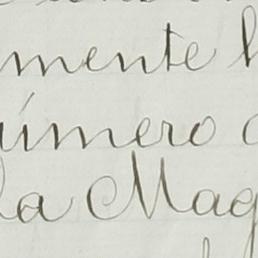 mente
úmero
la Mag